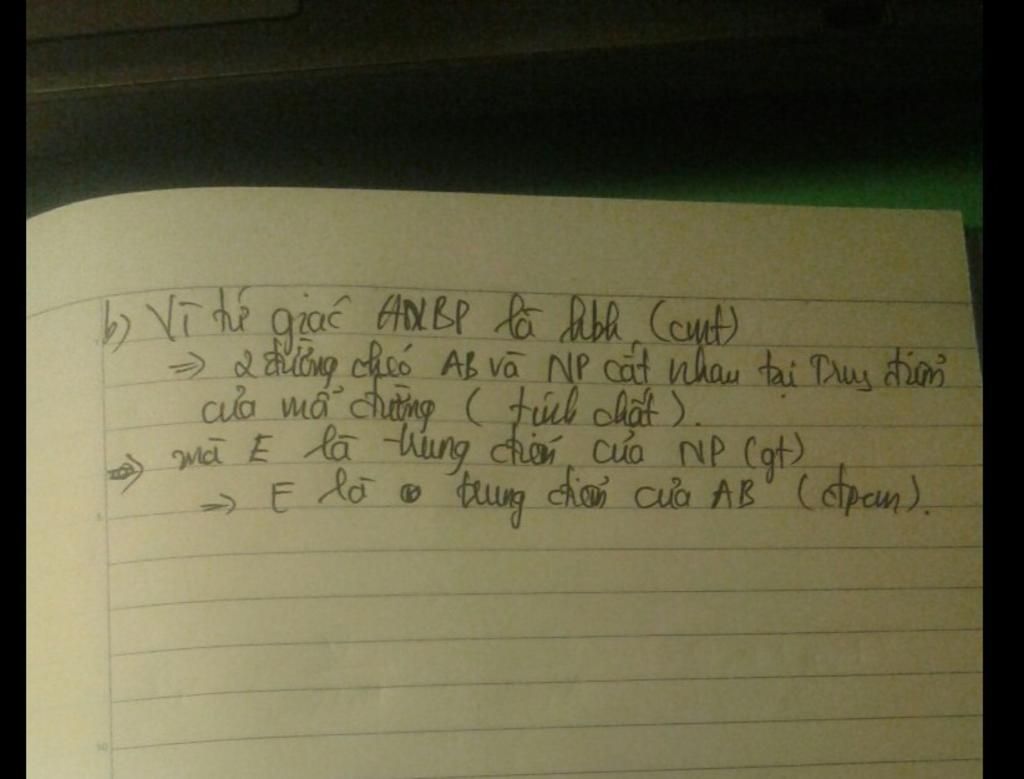 b) Vì tứ giác ANBP là hbh (cmt)
=> 2 đường chéo AB và NP cắt nhau tại trung điểm
của mỗi đường (tính chất).
=> mà E là trung điểm của NP (gt)
=> E là trung điểm của AB (đpcm).